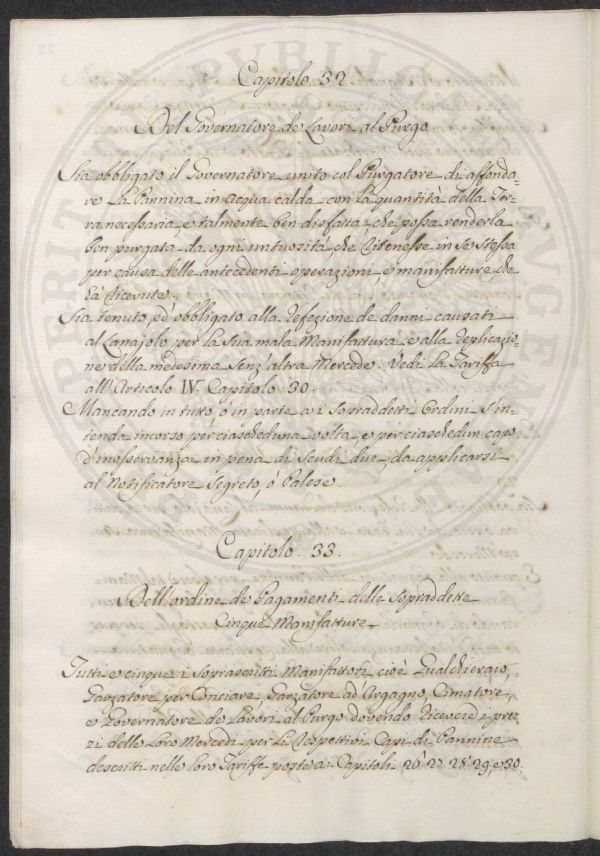 Capitolo 32
Del Governatore de Lavori al Purgo
Sia obbligato il Governatore unito col Purgatore di affonda=
re La Pannina in acqua calda con La quantità della Ter=
ra necessaria e talmente ben disfatta, che possa renderla
ben purgata da ogni untuosità, che Ritenesse in Se Stessa
per causa delle antecedenti operazioni e manifatture, che
hà Ricevute.
Sia tenuto, ed obbligato alla Refezione de danni causati
al Lanajolo per la Sua mala Manifattura e alla Replicazio=
ne della medesima Senz'altra Mercede. Vedi La Tariffa
all'Articolo IV. Capitolo 30.
Mancando in tutto, ò in parte a i Sopraddetti Ordini S'in=
tenda incorso per ciascheduna volta, e per ciaschedun capo
d'inosservanza in pena di Scudi due, da applicarsi
al Notificatore Segreto, ò Palese.
Capitolo. 33.
Dell'ordine de Pagamenti delle Sopraddette
Cinque Manifatture
Tutti e cinque i Soprascritti Manifattori, cioè Gualchieraio,
Garzatore per Conciare, Garzatore ad Argagno, Cimatore,
e Governatore de Lavori al Purgo dovendo Ricevere i prez=
zi delle Loro Mercedi per Li Respettivi Capi di Pannine
descritti nelle loro Tariffe poste a i Capitoli 26. 27. 28. 29. e 30.